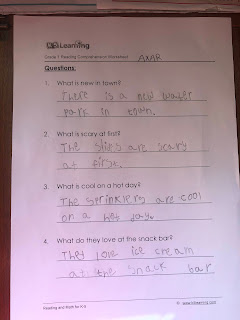 K5 Learning
Grade 1 Reading Comprehension Worksheet
Questions:
1. What is new in town?
There is a new water
park in town.
2. What is scary at first?
The slides are scary
at first.
3. What is cool on a hot day?
The sprinklers are cool
on a hot day.
4. What do they love at the snack bar?
They love ice cream
at the snack bar
Reading and Math for K-5
© www.k5learning.com